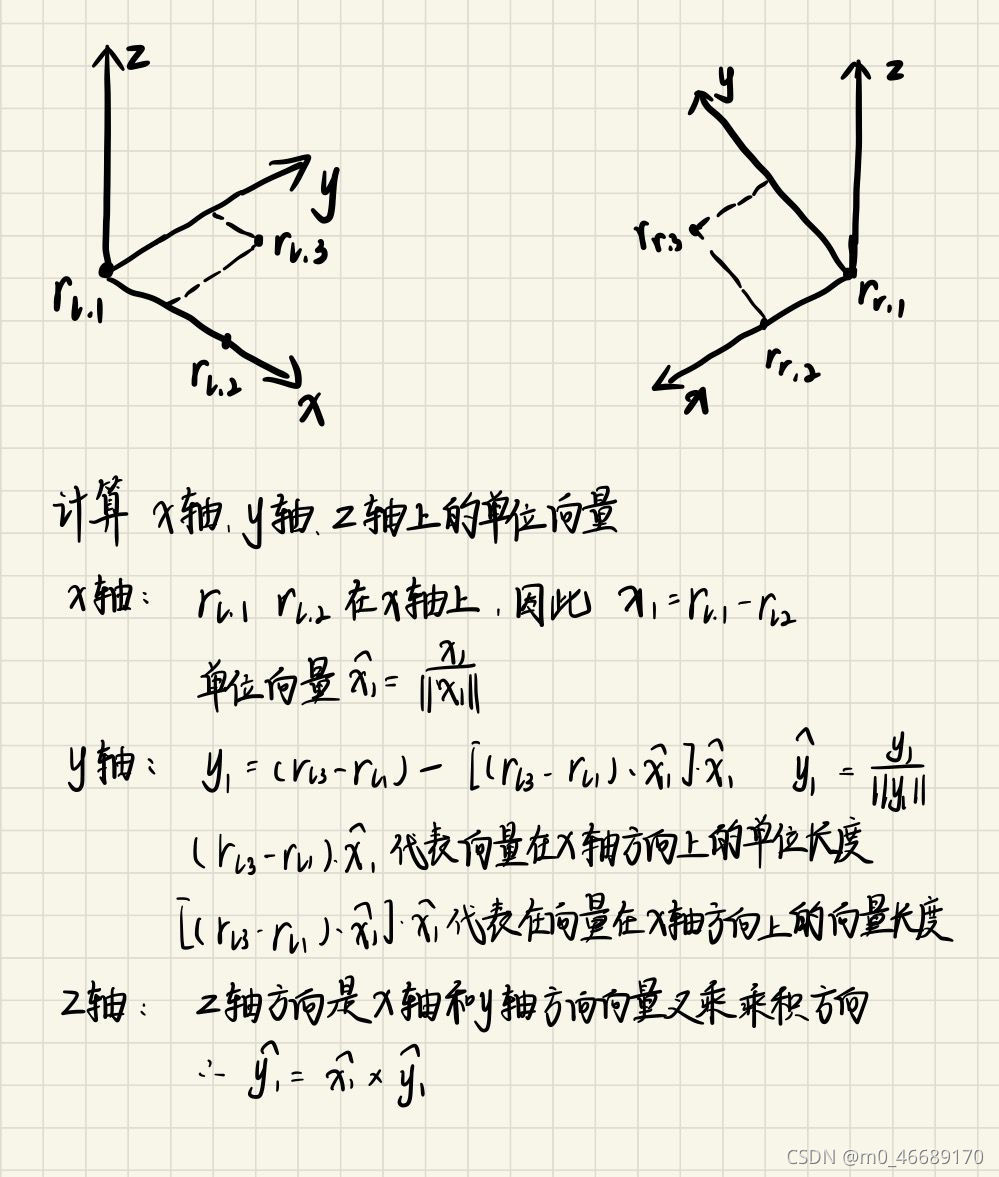 z
z
y
y
r_{l.3}
r_{r.3}
r_{l.1}
r_{r.1}
r_{l.2}
r_{r.2}
x
x
计算 x轴、y轴、z轴上的单位向量
x轴: r_{l.1} r_{l.2} 在x轴上,因此 x_1 = r_{l.1} - r_{l2}
单位向量 \hat{x}_1 = \frac{x_1}{||x_1||}
y轴: y_1 = (r_{l3} - r_{l1}) - [(r_{l3} - r_{l1})·\hat{x}_1]·\hat{x}_1 \hat{y}_1 = \frac{y_1}{||y_1||}
(r_{l3} - r_{l1})·\hat{x}_1 代表向量在x轴方向上的单位长度
[(r_{l3} - r_{l1})·\hat{x}_1]·\hat{x}_1 代表在向量在x轴方向上的向量长度
z轴: z轴方向是x轴和y轴方向向量叉乘乘积方向
∴ \hat{y}_1 = \hat{x}_1 × \hat{y}_1
CSDN @m0_46689170